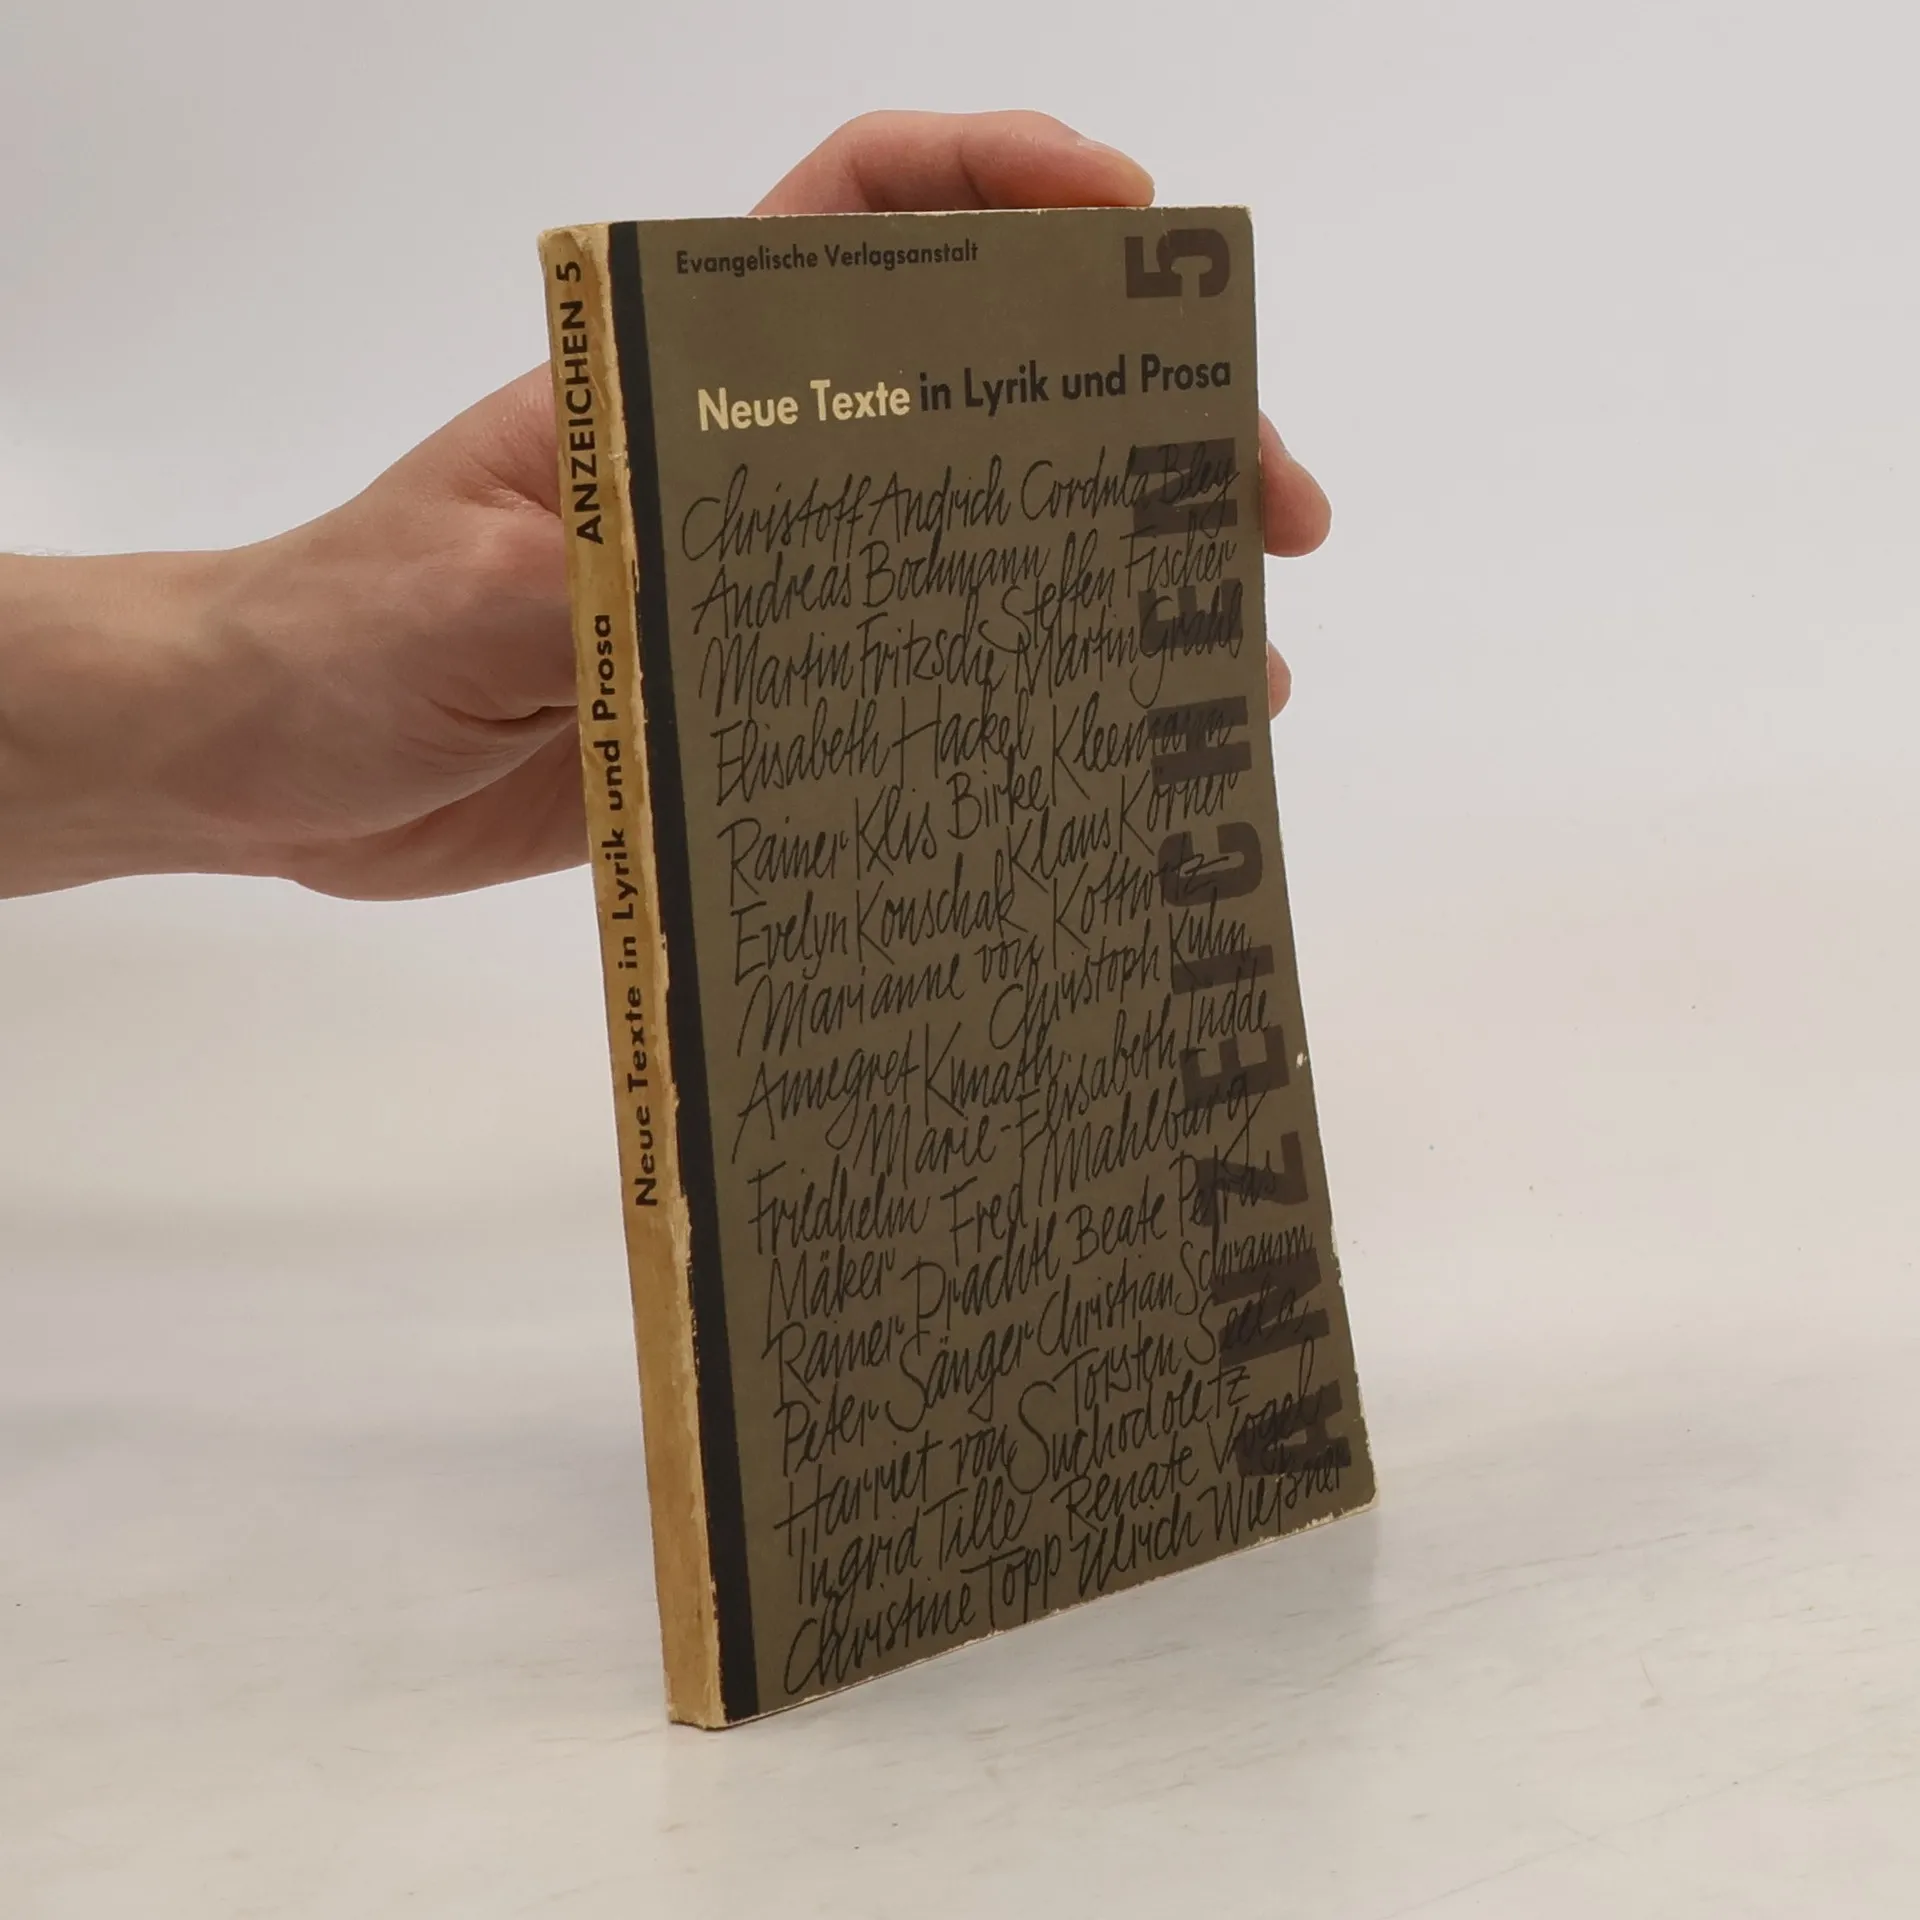 ANZEICHEN 5
Neue Texte in Lyrik und Prosa
Evangelische Verlagsanstalt
Neue Texte in Lyrik und Prosa
Christoff Andrich Cordula Bley
Andreas Bochmann Steffen Fischer
Martin Fritzsche Martin Grahl
Elisabeth Hackel Kleemann
Rainer Klis Birke Klaus Körner
Evelyn Konschak Kottwitz
Marianne von Christoph Kuhn
Annegret Kunath Marie-Elisabeth Lüdde
Friedhelm Fred Mahlburg
Mäker Beate Petras
Rainer Prachtl Christian Schramm
Peter Sänger Torsten Seela
Harriet von Suchodoletz
Ingrid Tille Renate Vogel
Christine Topp Ulrich Wießner
ANZEICHEN 5